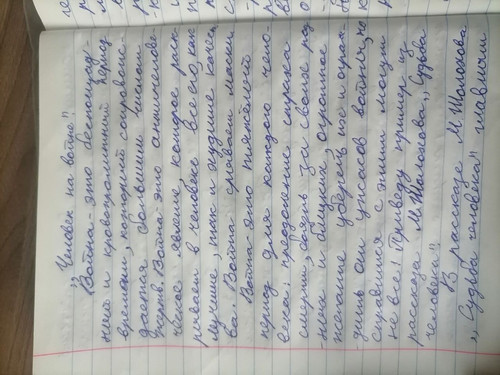 „Человек на войне"
Война - это беспощад-
ный и кровопролитный период
времени, который сопровож-
дается большим числом
жертв. Война это античелове-
ческое явление, которое раск-
рывает в человеке все его, как
лучшие, так и худшие качес-
ва. Война срывает маски
Война это тяжёлый
период для каждого чело-
века: преодоление страха
смерти, боязнь за своих род-
ных и близких, огромное
желание уберечь их и оградить
от ужасов войны, но
справился с этим могли
не все! Приведу пример из
рассказа М. Шолохова „Судьба
человека"
В рассказе М. Шолохова
„Судьба человека" главным